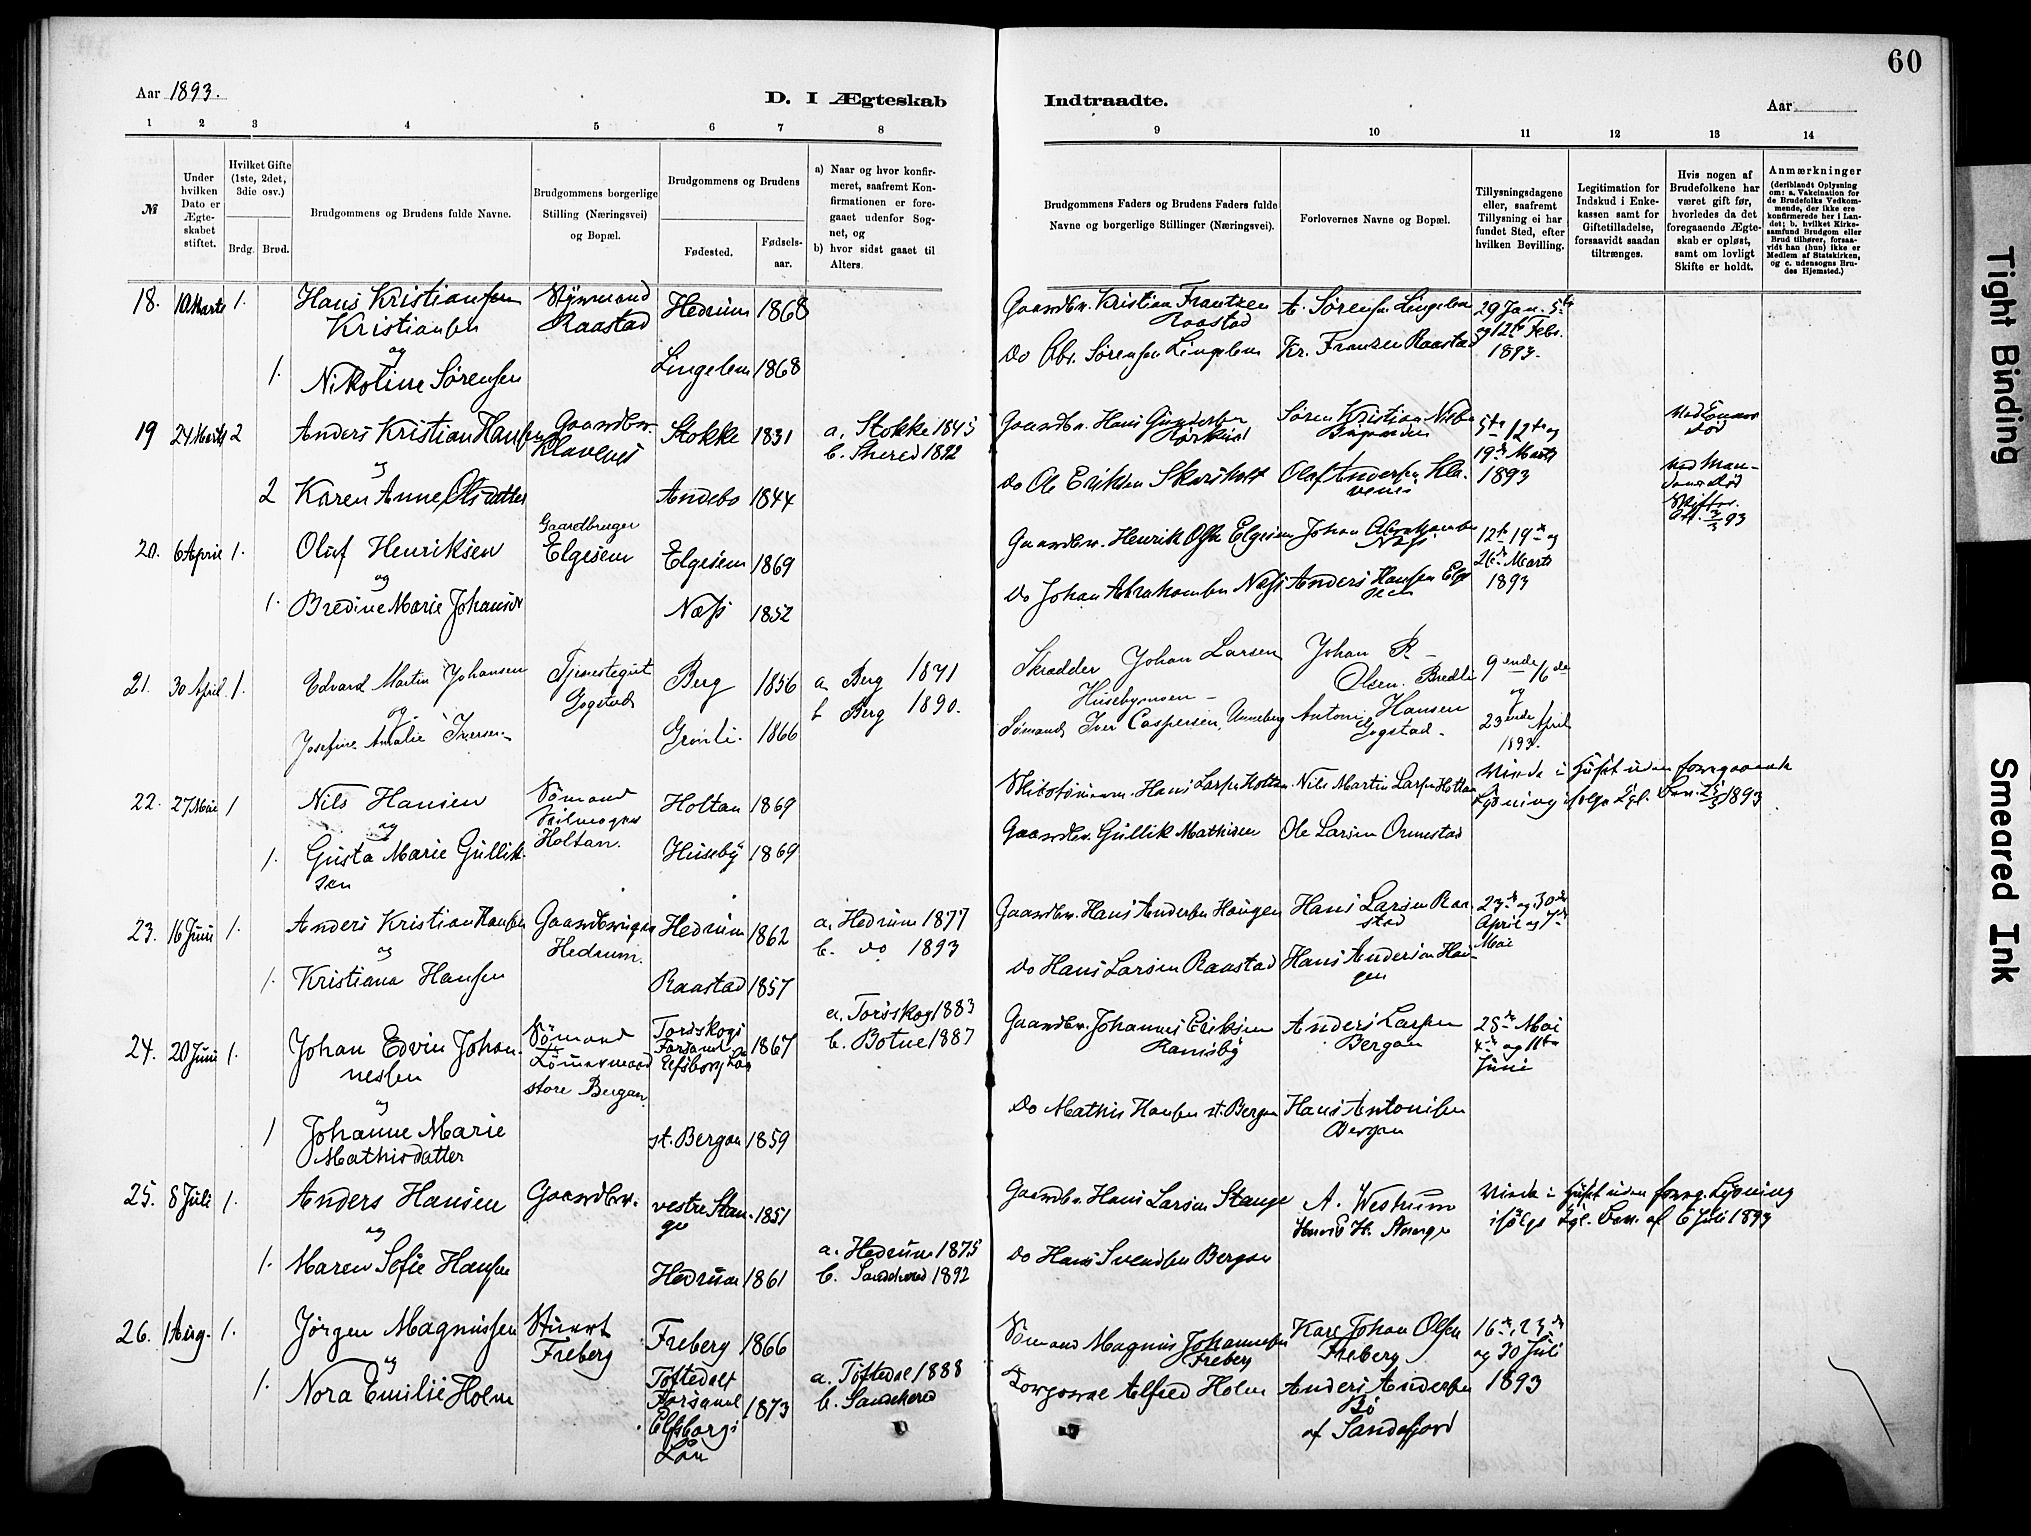 60
Aar 1893.
D. I Ægteskab
Indtraadte.
Aar
1 2 3 4 5 6 7 8
9 10 11 12 13 14
№
Under hvilken Dato er Ægteskabet stiftet.
Hvilket Gifte (1ste, 2det, 3die osv.)
Brdg. Brud.
Brudgommens og Brudens fulde Navne.
Brudgommens borgerlige Stilling (Næringsvei) og Bopæl.
Brudgommens og Brudens
Fødested.
Fødsels-aar.
a) Naar og hvor konfir-
meret, saafremt Kon-
firmationen er fore-
gaaet udenfor Sog-
net, og
b) hvor sidst gaaet til
Alters.
Brudgommens Faders og Brudens Faders fulde
Navne og borgerlige Stillinger (Næringsvei).
Forlovernes Navne og Bopæl.
Tillysningsdagene
eller, saafremt
Tillysning ei har
fundet Sted, efter
hvilken Bevilling.
Legitimation for
Indskud i Enke-
kassen samt for
Giftetilladelse,
forsaavidt saadan
tiltrænges.
Hvis nogen af
Brudefolkene har
været gift før,
hvorledes da det
foregaaende Ægte-
skab er opløst,
samt om lovligt
Skifte er holdt.
Anmærkninger
(deriblandt Oplysning
om: a. Vakcination for
de Brudefolks Vedkom-
mende, der ikke ere
konfirmerede her i Lan-
det; b. hvilket Kirke-
samfund Brudgom eller
Brud tilhører, forsaa-
vidt han (hun) ikke er
Medlem af Statskirken,
og c. udensogns Bru-
des Hjemsted.)
18. 10 Marts 1. Hans Kristiansen Kristiansen Styrmand Raastad Hedrum 1868
Gaardbr. Kristian Frantzen Raastad A. Sørensen Lingelem 29 Jan. 5te og 12te Febr. 1893.
og
1. Nikoline Sørensen Lingelem 1868
Do Abr. Sørensen Lingelem Kr. Franzen Raastad
19 24 Marts 2 Anders Kristian Hansen Gaardbr. Klavenes Stokke 1831 a. Stokke 1845
b. Shered 1892
Gaardbr. Hans Gundersen Søren Kristian 5te 12te og 19de Marts 1893
død
og
2 Karen Anne Olsdatter Andebo 1844
Do Ole Eriksen Skorsholt Olaf Andersen Klavenes
93
20. 6 April 1. Oluf Henriksen Gaardbruger Elgesem Elgesem 1869
Gaardbr. Henrik Olsen Elgesem Johan Abrahamsen Næss 12te 19de og 26de Marts 1893
og
1. Bredine Marie Johansdr. Næss 1852
Do Johan Abrahamsen Næss Anders Hansen Elgesem
21. 30 April 1. Edvard Martin Johansen Tjenestegut Gogstad Berg 1856 a Berg 1871
b Berg 1890.
Skrædder Johan Larsen Husebymoen - Johan R- Olsen. Bredli 9ende 16de og 23ende April 1893.
og
Josefine Amalie Iversen Grønli. 1866
Sømand Iver Caspersen, Unneberg Anton Hansen Gogstad -
22. 27 Mai 1 Nils Hansen Sømand Holtan. Holtan 1869
Hans Larsen Holtan Nils Martin Larsen Holtan Viede i Huset uden foregaaende Lysning ifølge Kgl. Bev. 1893
og
1. Gusta Marie Gulliksen Huseby 1869
Gaardbr. Gullik Mathisen Ole Larsen Ormestad
23. 16 Juni 1. Anders Kristian Hansen Gaardbruger Hedrum. Hedrum 1862 a. Hedrum 1877
b. do 1893
Gaardbr. Hans Andersen Haugen Hans Larsen Raastad 23de og 30de April og 7de Mai
og
1. Kristiana Hansen Raastad 1857
Do Hans Larsen Raastad Hans Andersen Haugen
24. 20 Juni 1. Johan Edvin Johannessen Sømand store Bergan. Torsskogs Forsaml. Elfsborg Län 1867 a. Torsskog 1883
b. Botne 1887
Gaardbr. Johannes Eriksen Ramsby Anders Larsen Bergan 28de Mai 4de og 11te Juni
og
1 Johanne Marie Mathisdatter st. Bergan 1859
Do Mathis Hansen st. Bergan Hans Antonisen Bergan
25. 8 Juli 1. Anders Hansen Gaardbr. vestre Stange 1851
Gaardbr. Hans Larsen Stange A. Westrum Henrik H. Stange Viede i Huset uden foreg. Lysning ifølge Kgl. Bev. af 6 Juli 1893
og
1. Maren Sofie Hansen Hedrum 1861 a. Hedrum 1875
b. Sandeherred 1892
Do Hans Svendsen Bergan
26. 1 Aug. 1. Jørgen Magnussen Stuert Freberg Freberg 1866
Sømand Magnus Johannesen Freberg Karl Johan Olsen Freberg 16de, 23de og 30 Juli 1893
og
1. Nora Emilie Holm Töftedals Forsaml Elfsborgs Län 1873 a. Töftedal 1888
b. Sandeherred
Alfred Holm Anders Andersen Bø af Sandefjord
Tight Binding
Smeared Ink